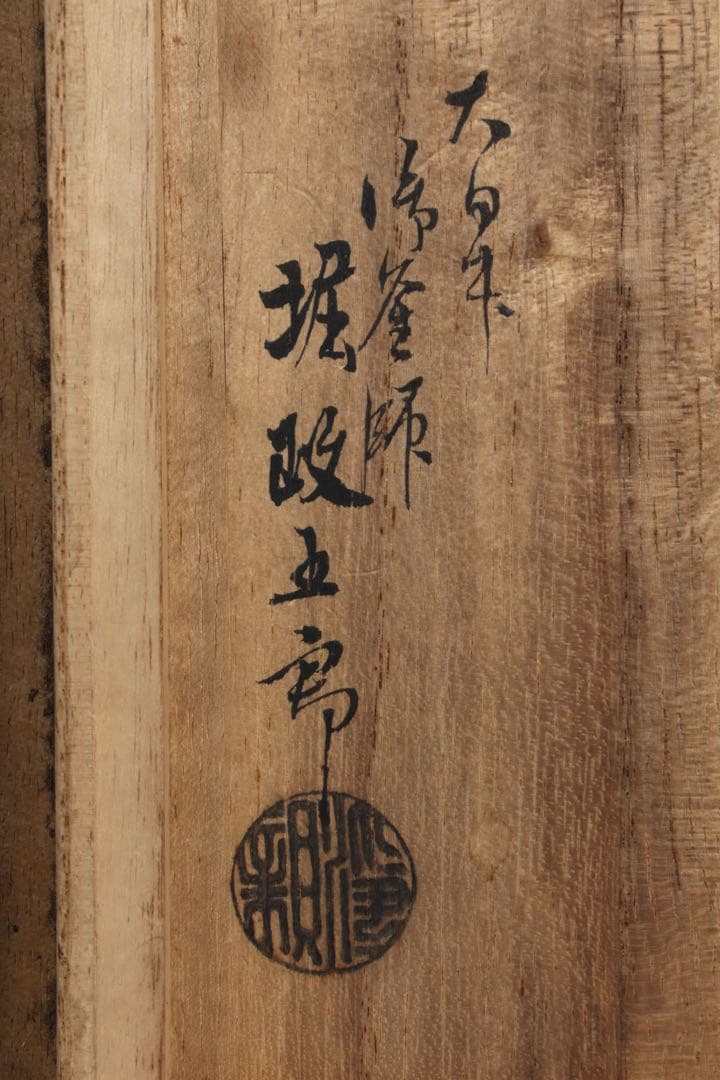 大日本
御釜師
堀政五郎